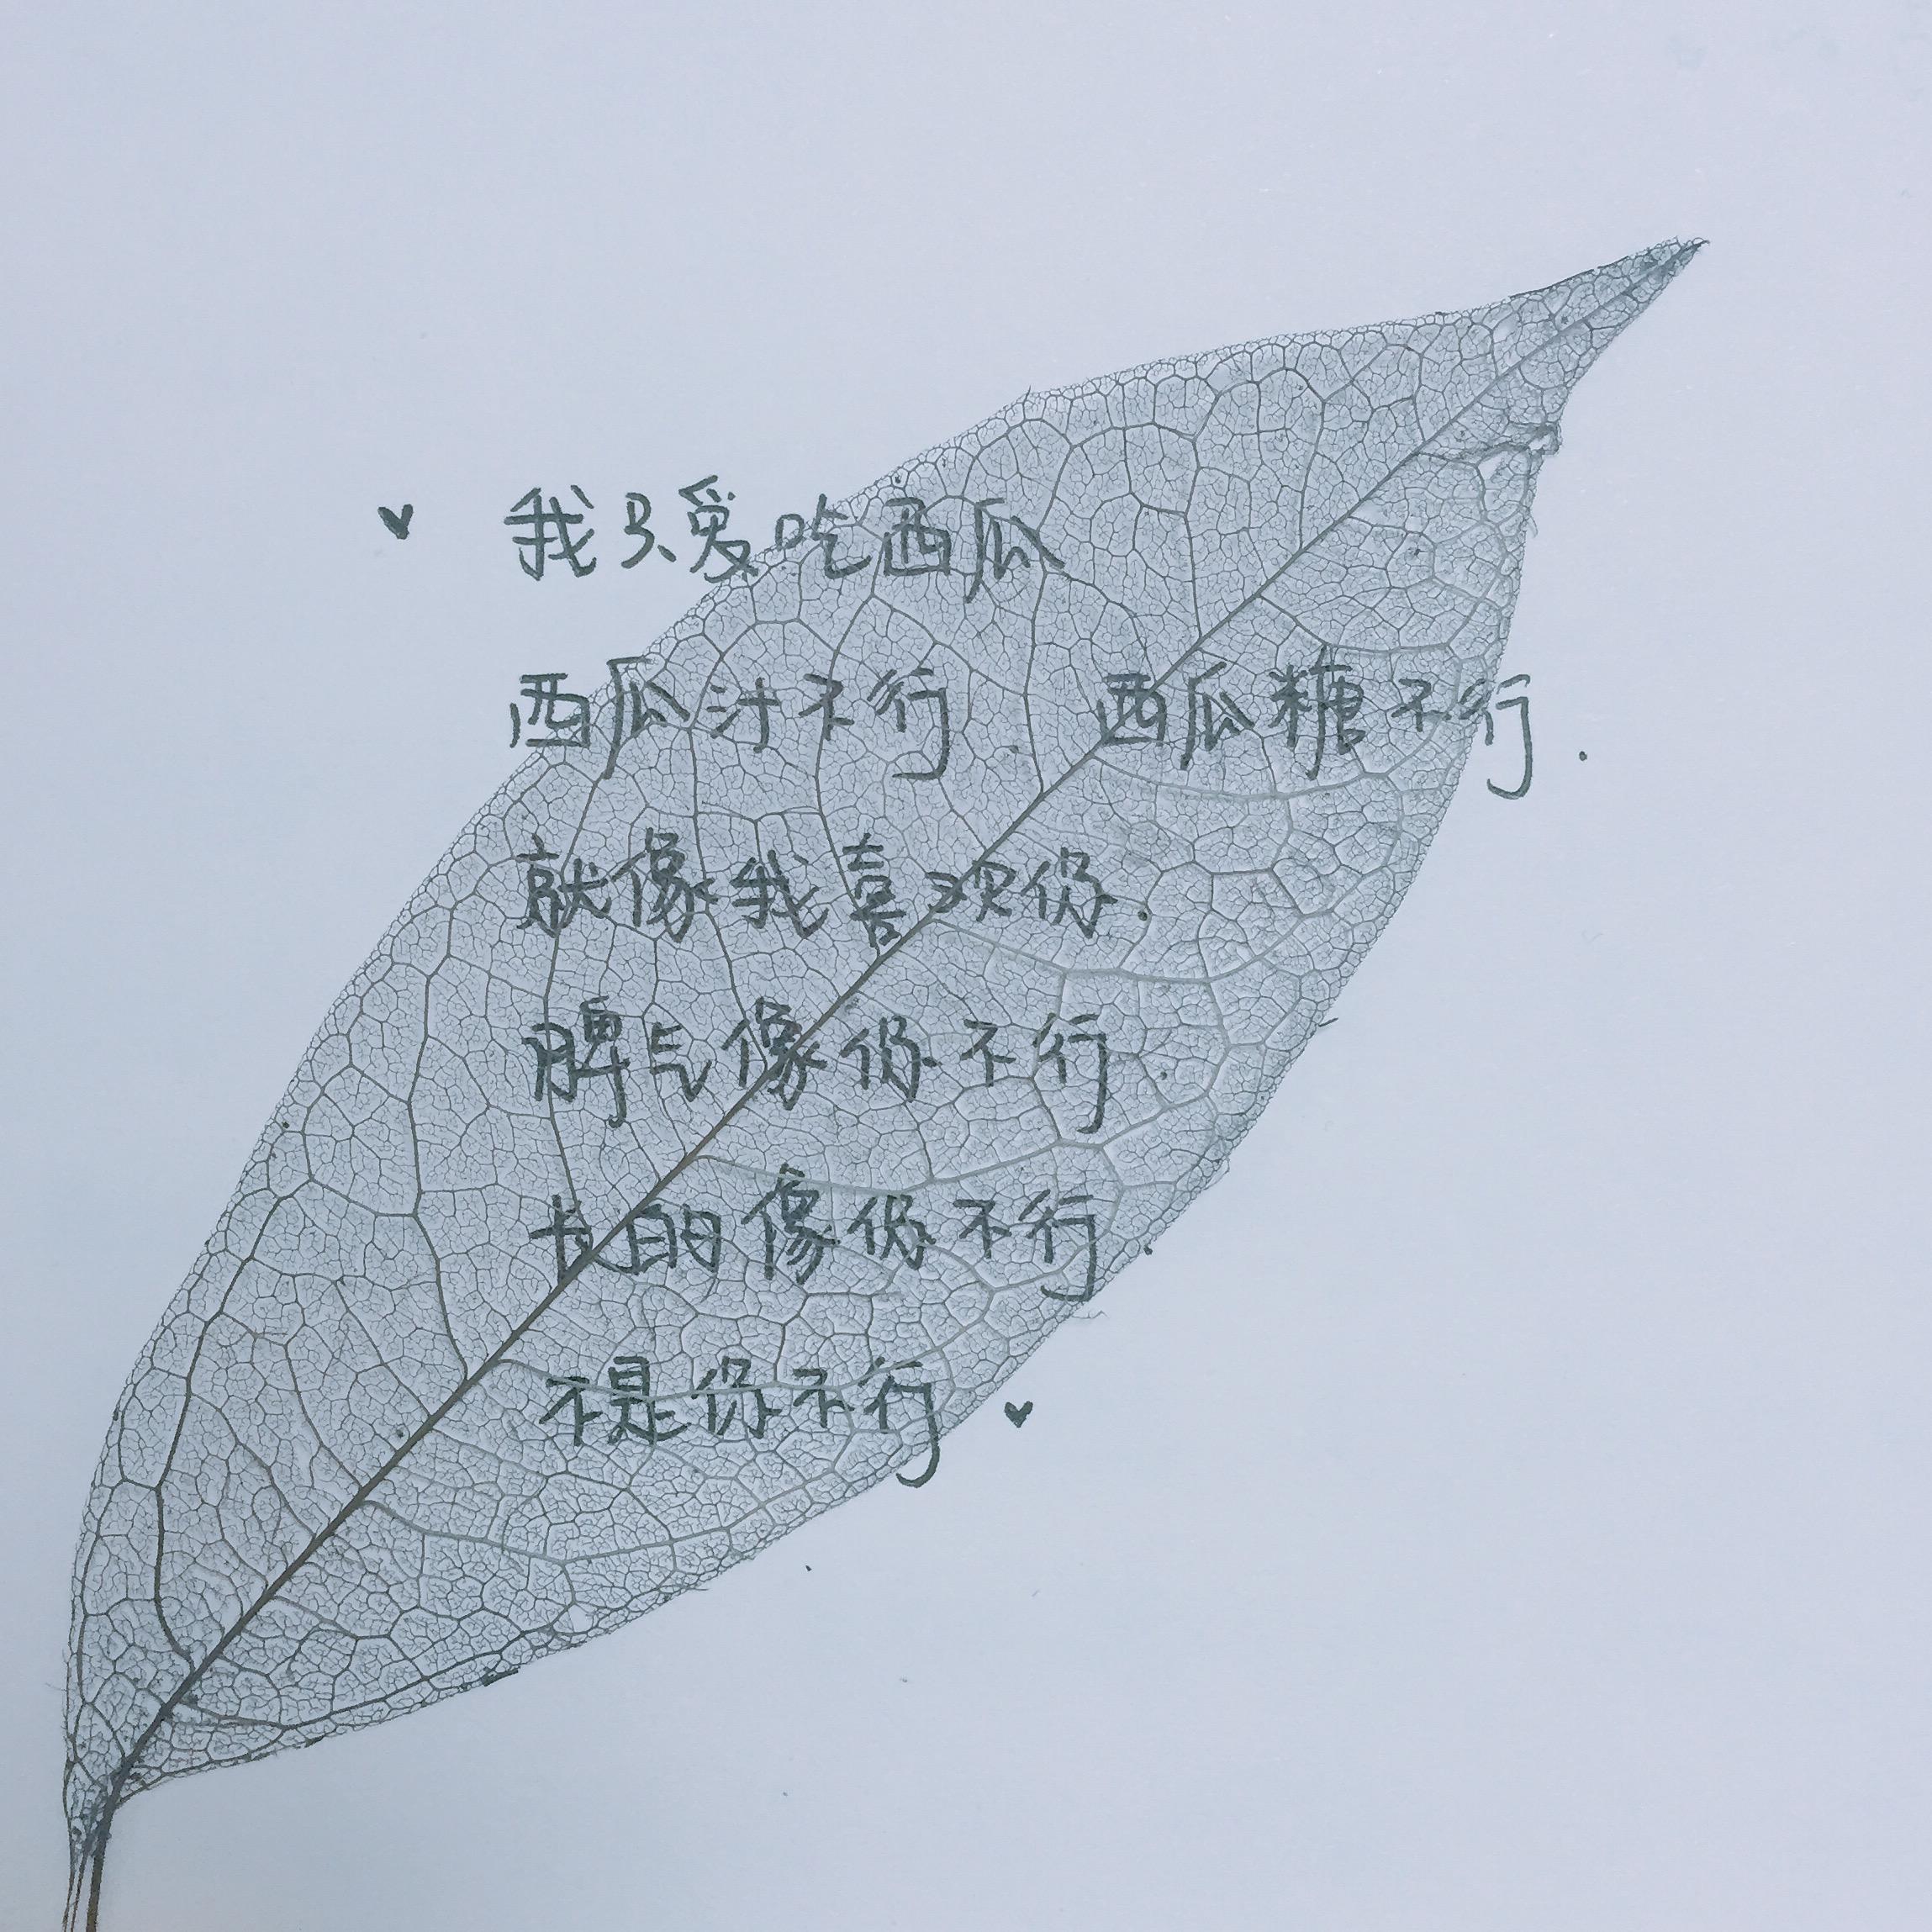 ♥ 我只爱吃西瓜
西瓜汁不行 西瓜糖不行.
就像我喜欢你.
脾气像你不行.
长的像你不行.
不是你不行 ♥